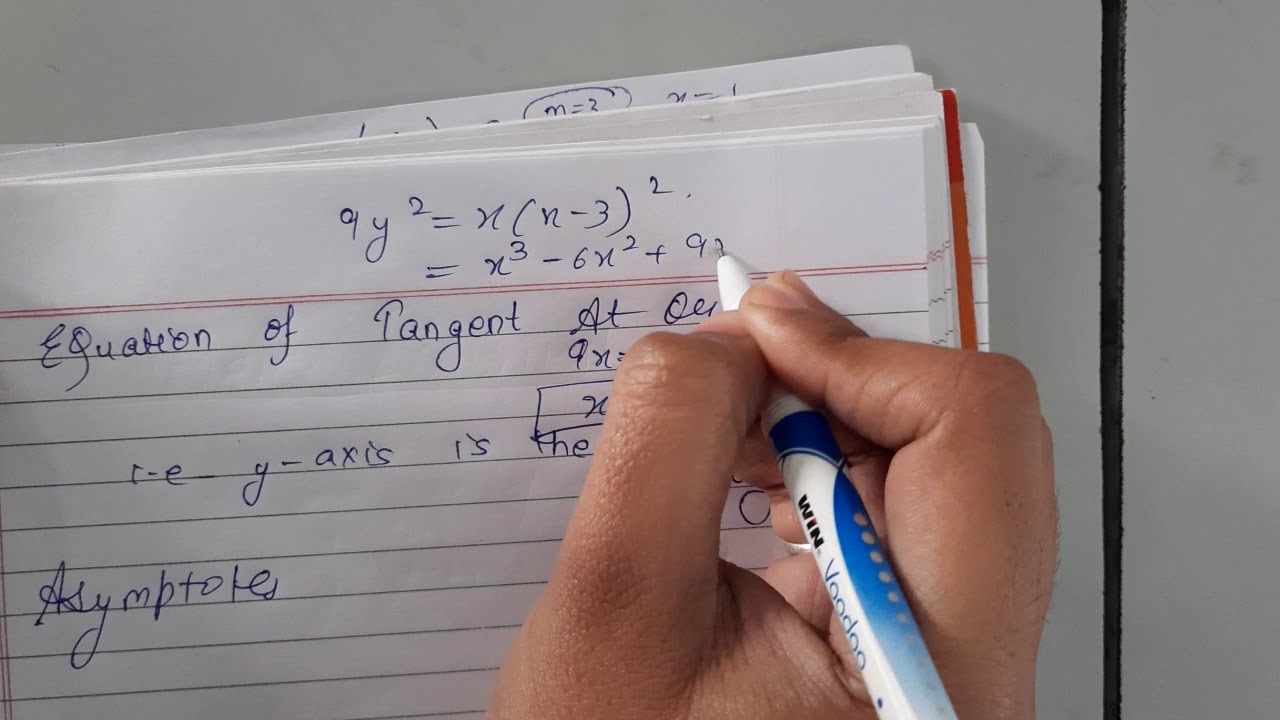 m=2 x=1
9y² = x(x-3)².
= x³ - 6x² + 9x
Equation of Tangent At
9x=
x
i-e y-axis is the
Asymptotes
WIN Voodoo